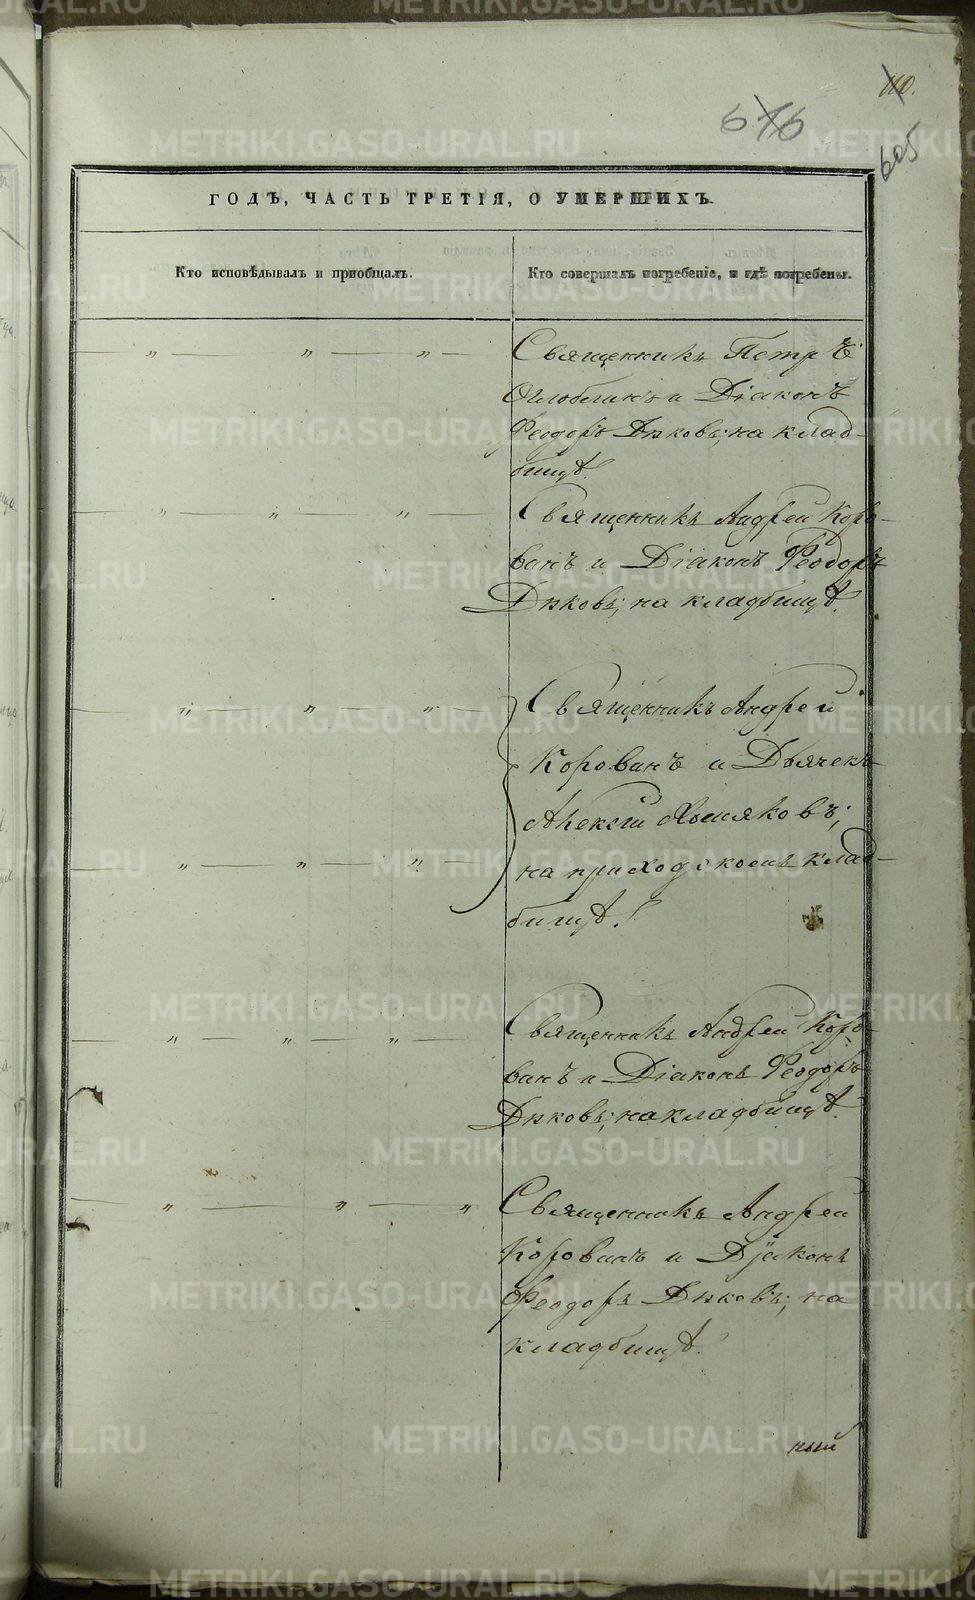 616
605
ГОДЪ, ЧАСТЬ ТРЕТІЯ, О УМЕРШИХЪ.
Кто исповѣдывалъ и пріобщалъ.
Кто совершалъ погребеніе, и гдѣ погребены.
" — " — " —
Священникъ Петръ
Оглоблинъ и Діаконъ
Феодоръ Дьковъ; на клад-
бищѣ.
" — " — " —
Священникъ Андрей Коро-
ванъ и Діаконъ Феодоръ
Дьковъ; на кладбищѣ.
" — " — " —
Священникъ Андрей
Корованъ и Дьячекъ
Алексѣй Хомяковъ;
" — " — " —
на приходскомъ клад-
бищѣ.
" — " — " —
Священникъ Андрей Коро-
ванъ и Діаконъ Феодоръ
Дьковъ; на кладбищѣ.
" — " — "
Священникъ Андрей
Корованъ и Діаконъ
Феодоръ Дьковъ; на
кладбищѣ.
ный
METRIKI.GASO-URAL.RU